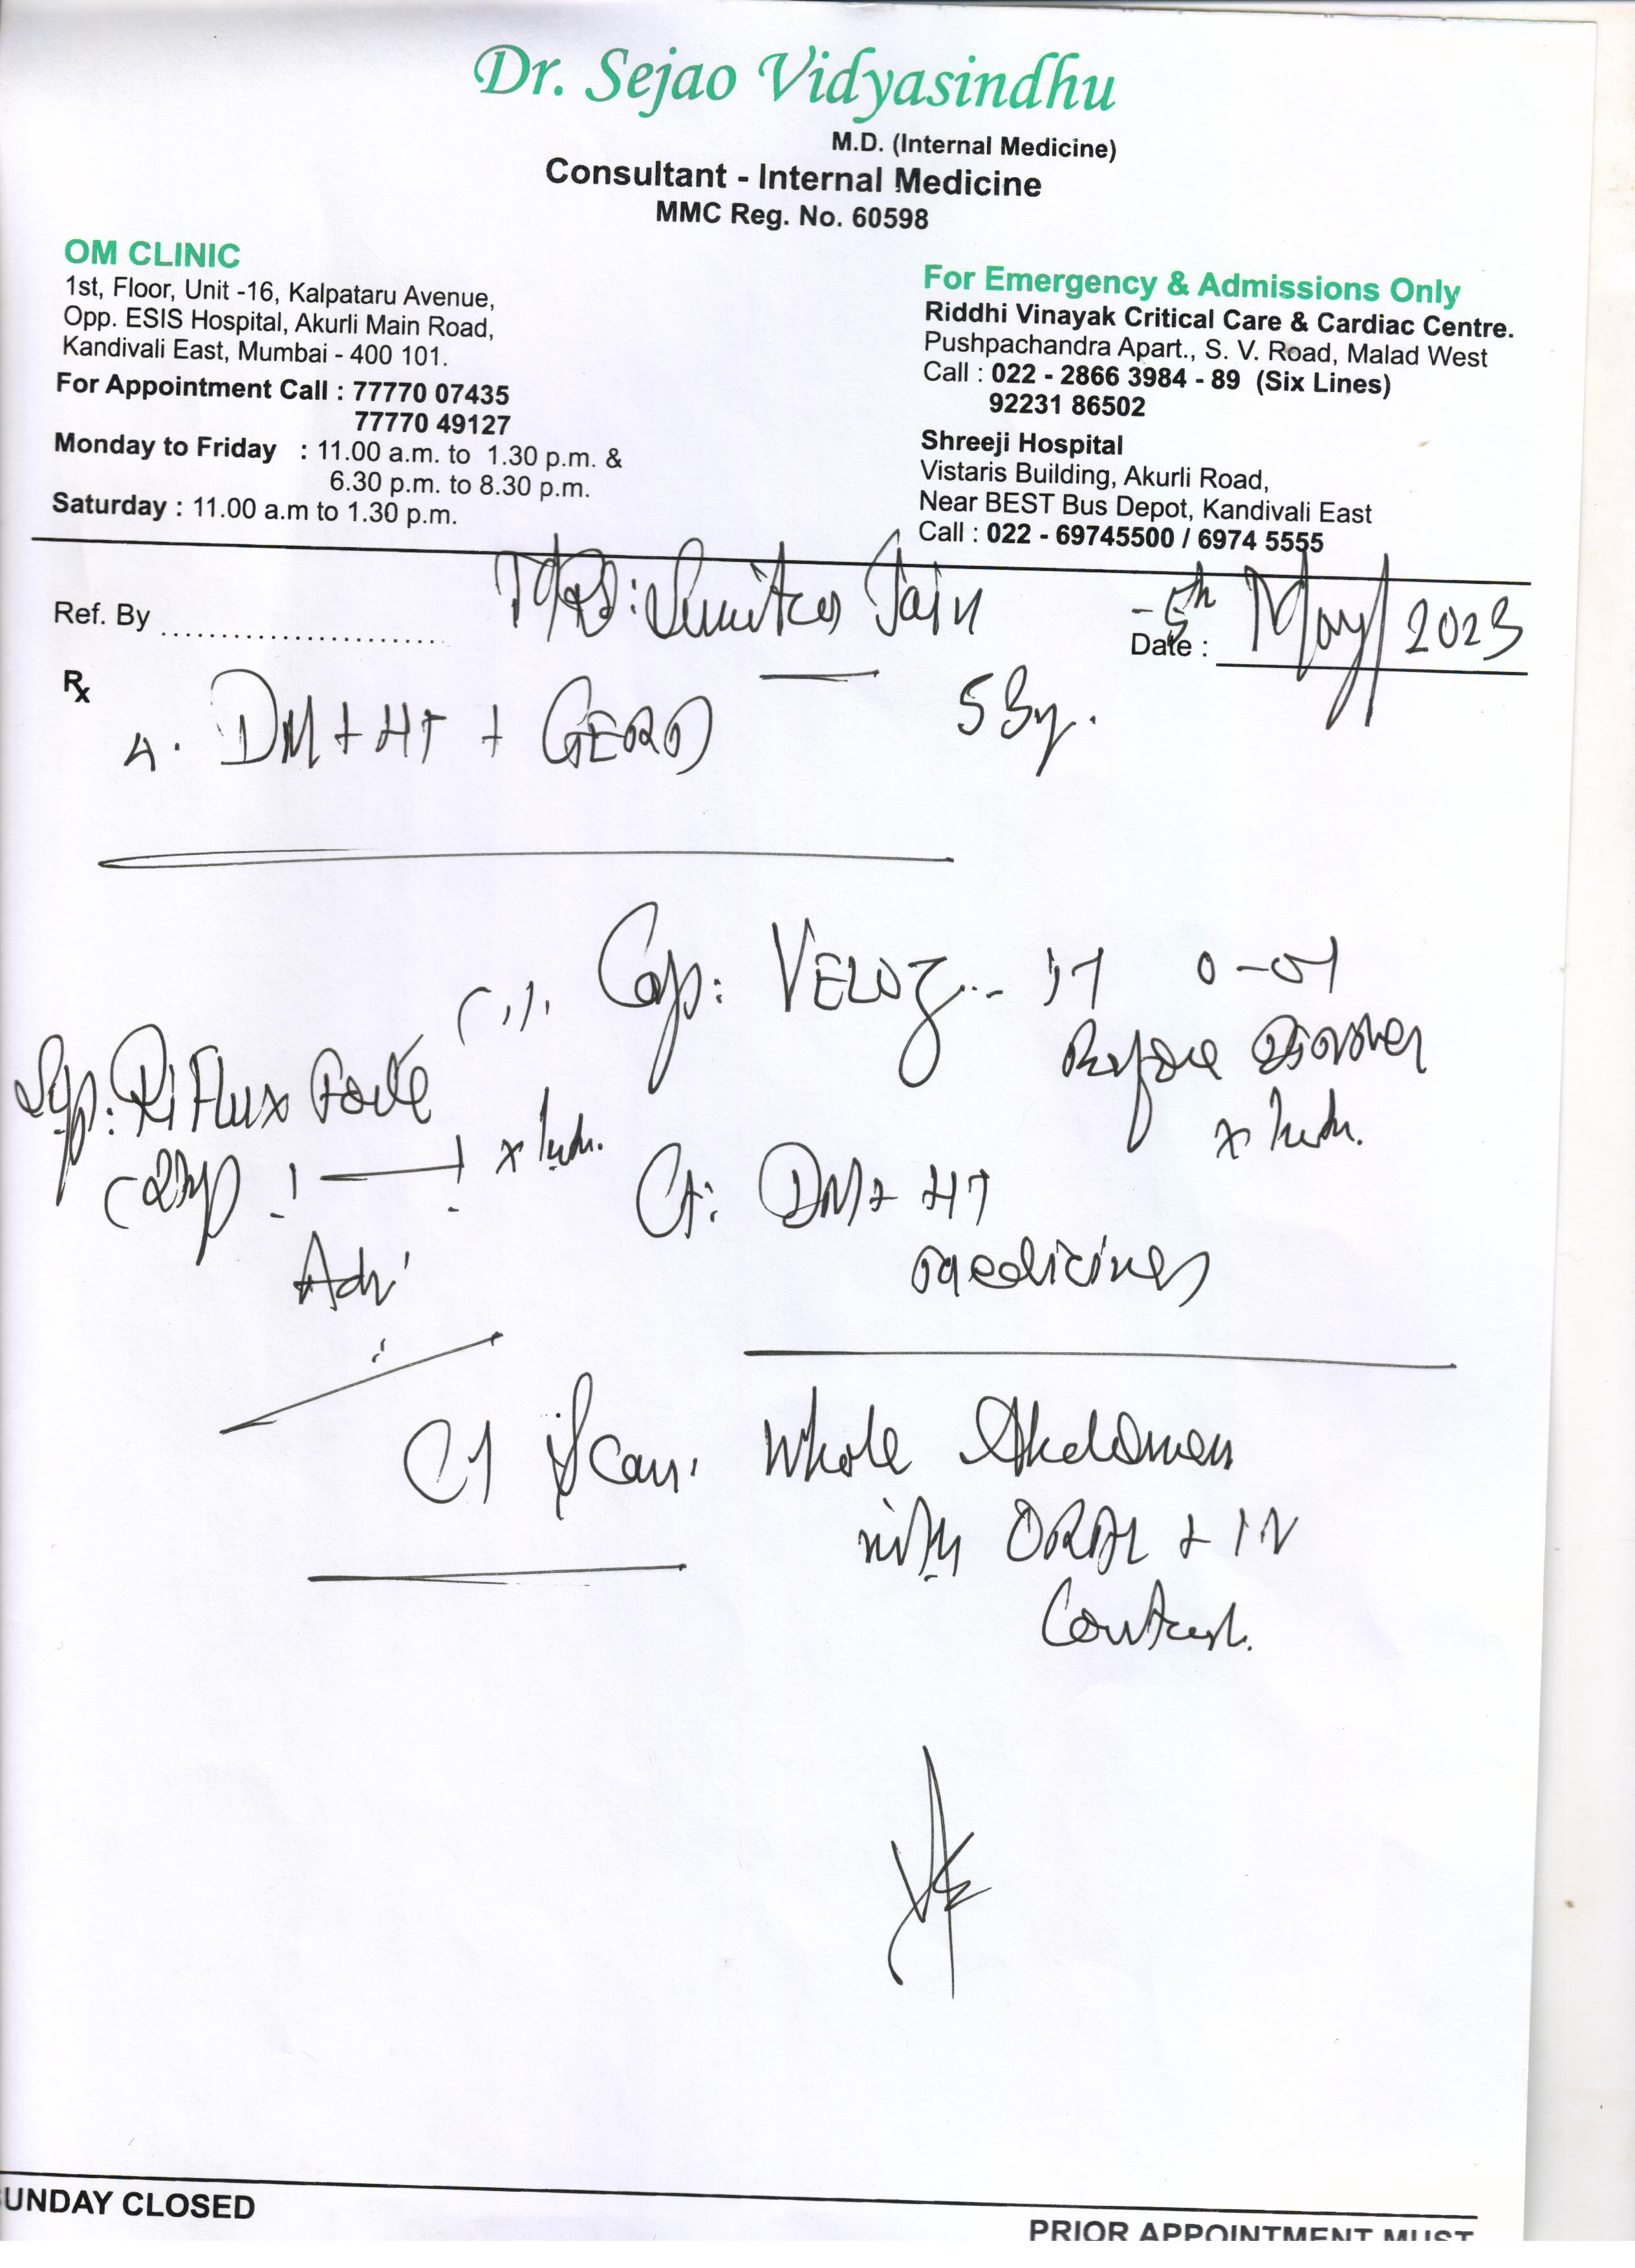 Dr. Sejao Vidyasindhu
M.D. (Internal Medicine)
Consultant - Internal Medicine
MMC Reg. No. 60598
OM CLINIC
1st, Floor, Unit -16, Kalpataru Avenue,
Opp. ESIS Hospital, Akurli Main Road,
Kandivali East, Mumbai - 400 101.
For Appointment Call : 77770 07435
77770 49127
Monday to Friday : 11.00 a.m. to 1.30 p.m. &
6.30 p.m. to 8.30 p.m.
Saturday : 11.00 a.m to 1.30 p.m.
For Emergency & Admissions Only
Riddhi Vinayak Critical Care & Cardiac Centre.
Pushpachandra Apart., S. V. Road, Malad West
Call : 022 - 2866 3984 - 89 (Six Lines)
92231 86502
Shreeji Hospital
Vistaris Building, Akurli Road,
Near BEST Bus Depot, Kandivali East
Call : 022 - 69745500 / 6974 5555
Ref. By
Jain
Date : 5th May/2023
Rx
DM + HT + GERD
Cap: VELOZ
Before
Syp: Riflux Forte
Ct: DM + HT
medicines
Adv:
CT Scan: Whole Abdomen
with ORAL + IV
Contrast.
SUNDAY CLOSED
PRIOR APPOINTMENT MUST